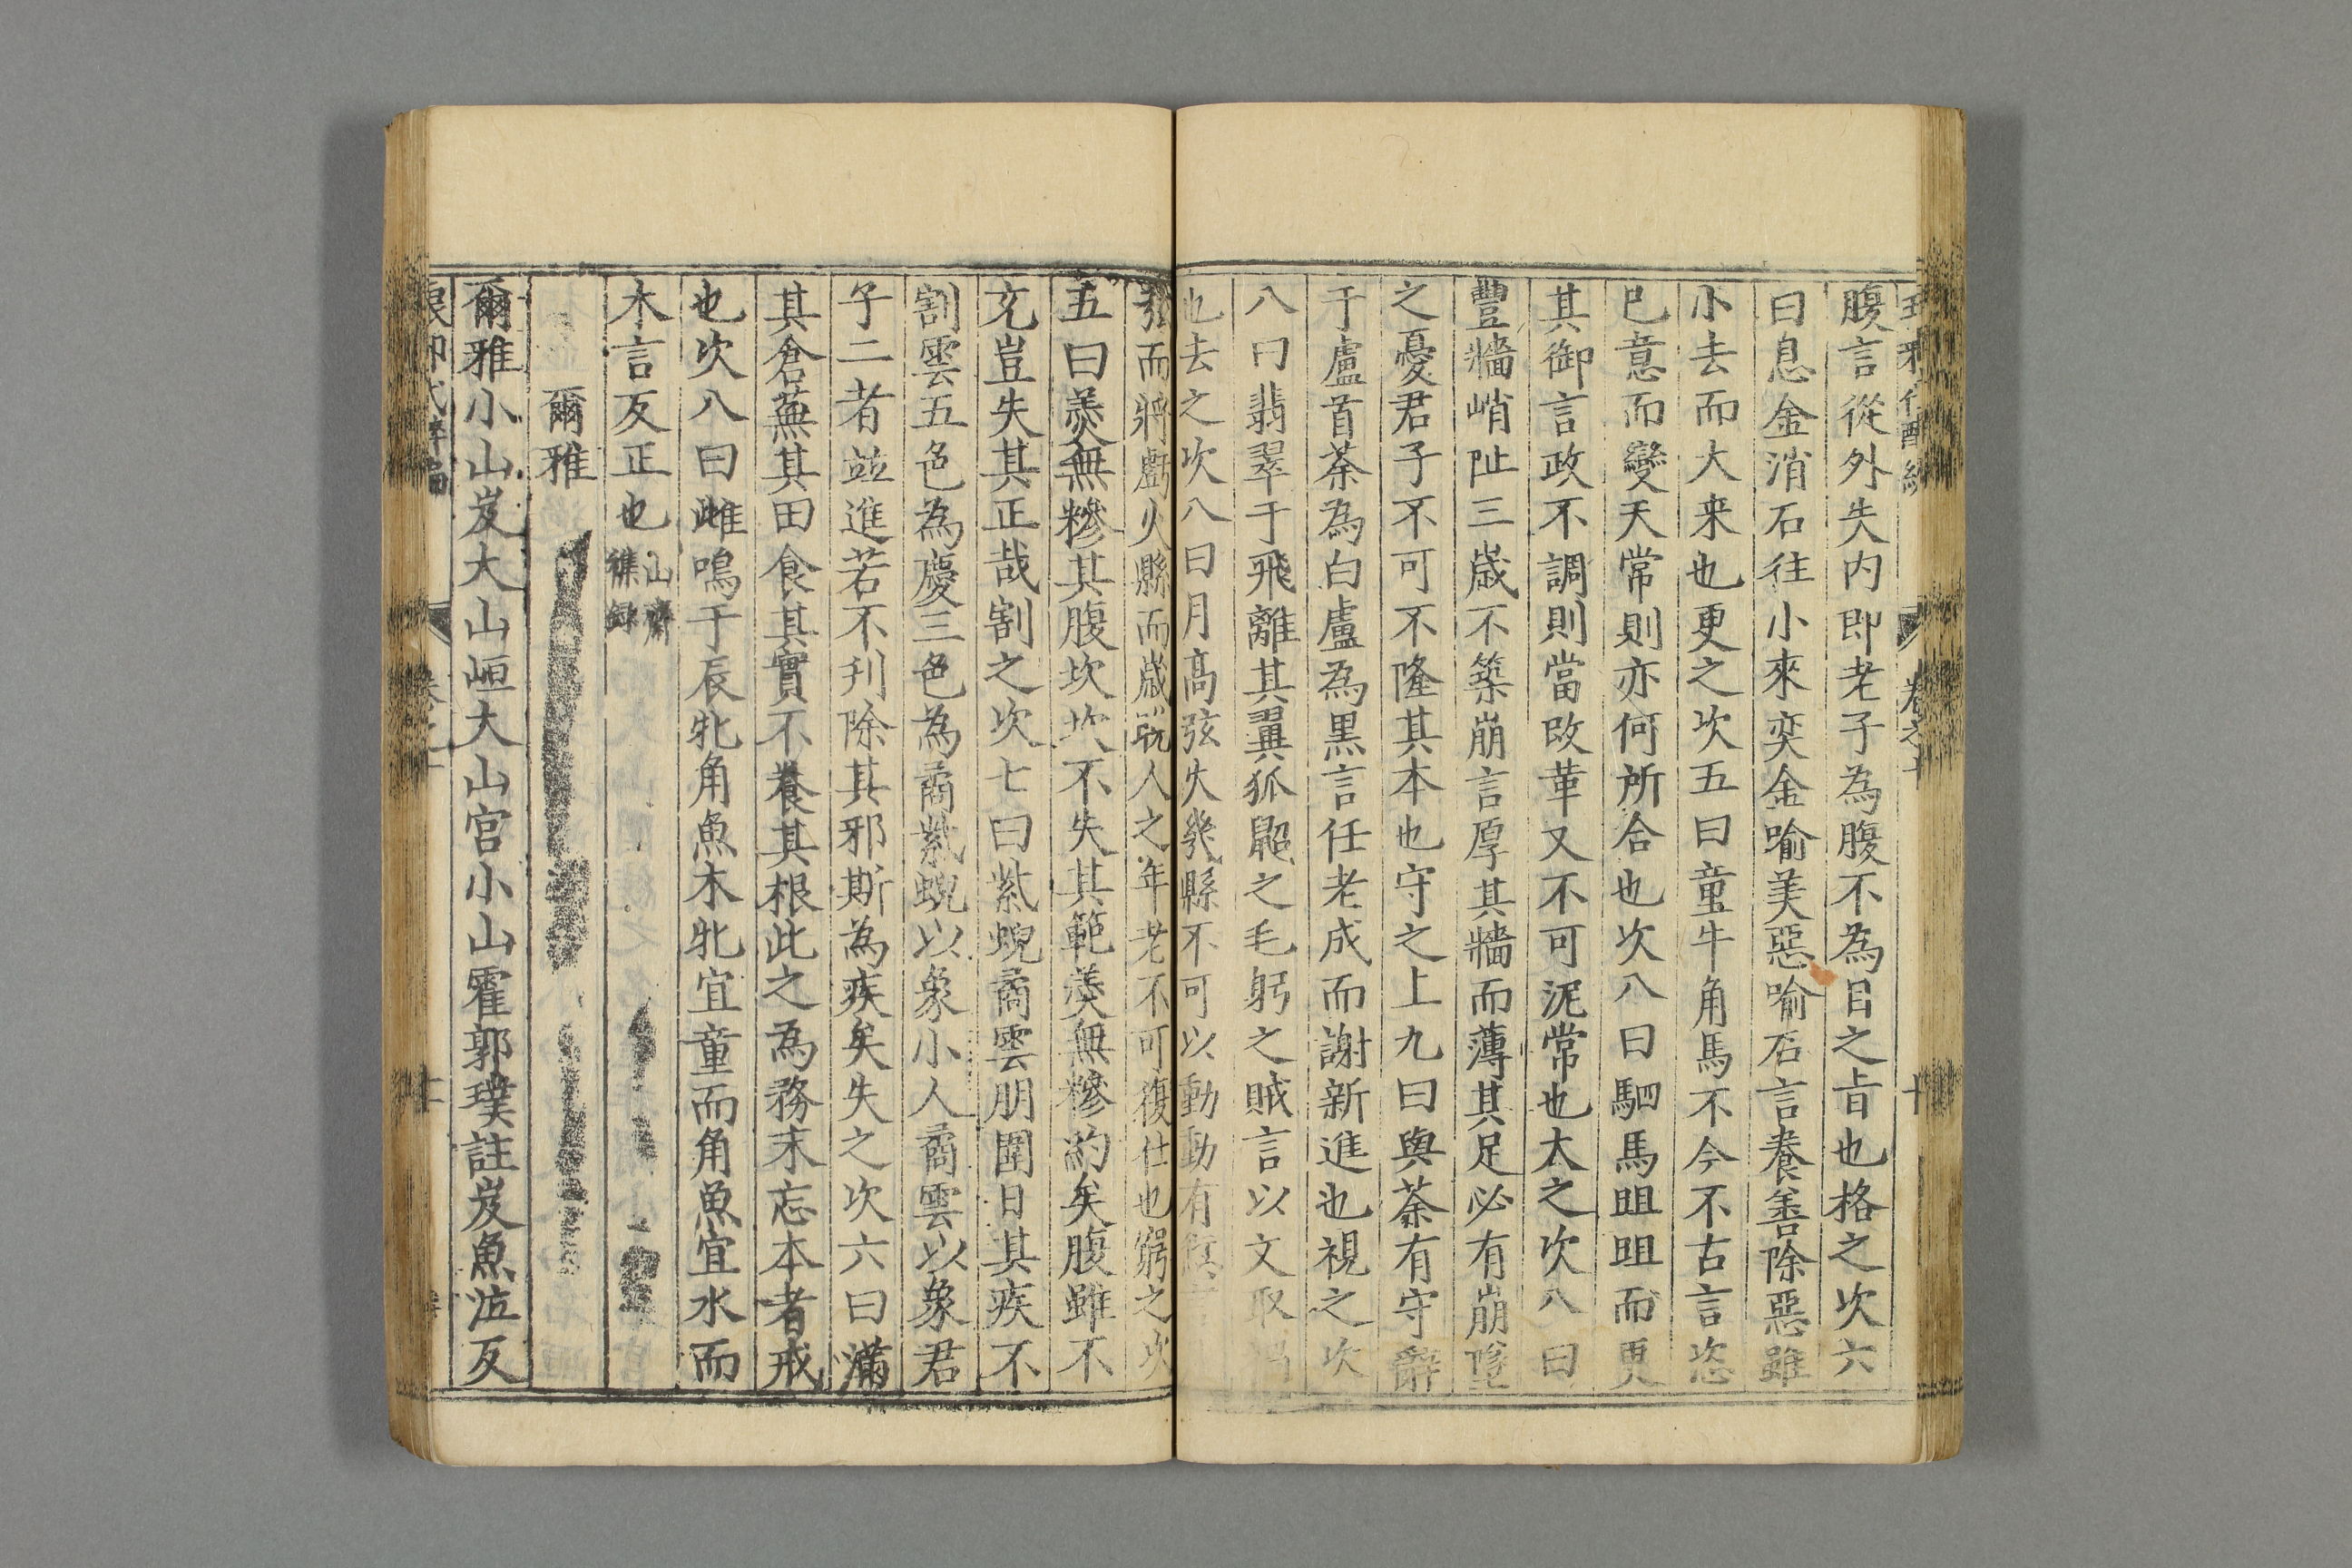 卷之十 十
腹言從外失内即老子為腹不為目之旨也格之次六
曰息金消石往小來奕金喻美惡喻石言養善除惡雖
小去而大来也更之次五曰童牛角馬不今不古言恣
已意而變天常則亦何所合也次八曰駟馬跙跙而更
其御言政不調則當改革又不可泥常也太之次八曰
豐牆峭阯三歲不築崩言厚其牆而薄其足必有崩墜
之憂君子不可不隆其本也守之上九曰與荼有守辭
于盧首荼為白盧為黒言任老成而謝新進也視之次
八曰翡翠于飛離其翼狐鼦之毛躬之賊言以文取
也去之次八曰月高弦火幾縣不可以動動有
弦而將虧火縣而歲人之年老不可復仕也窮之次
五曰羮無糝其腹坎坎不失其範羮無糝約矣腹雖不
充豈失其正哉割之次七曰紫蜺矞雲朋圍日其疾不
割雲五色為慶三色為矞紫蜺以象小人矞雲以象君
子二者並進若不刋除其邪斯為疾矣失之次六曰滿
其倉蕪其田食其實不養其根此之為務末忘本者戒
也次八曰雌鳴于辰牝角魚木牝宜童而角魚宜水而
木言反正也山齋雜録
爾雅
爾雅小山岌大山峘大山宫小山霍郭璞註岌魚泣反